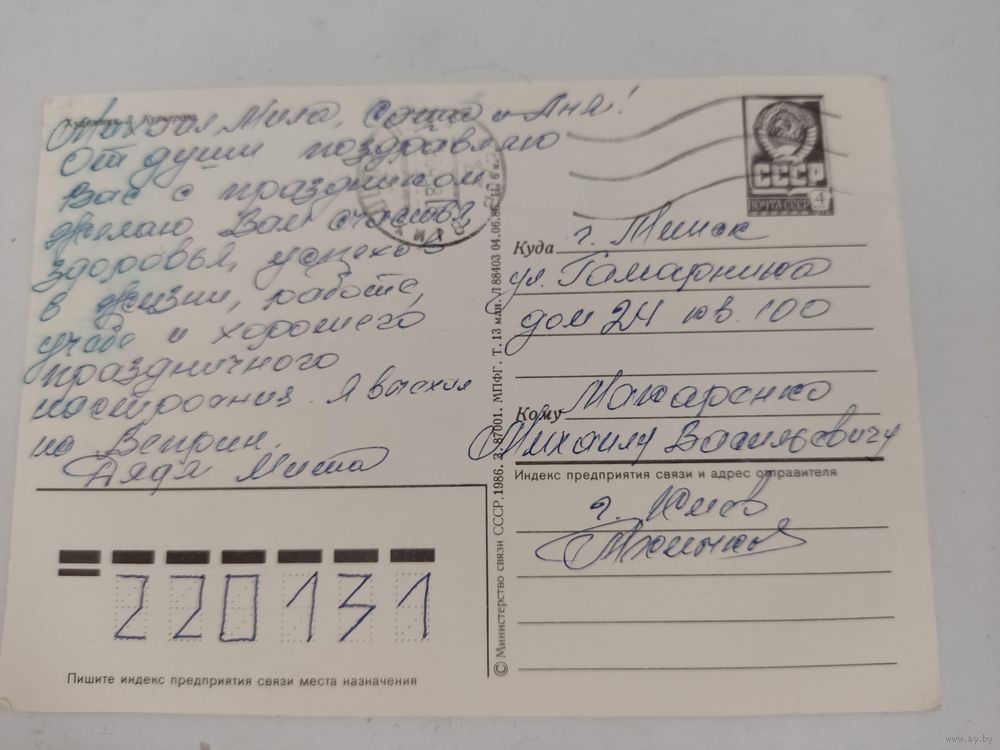 Художник Л. Курьерова
Михаил, Мила, Саша и Аня!
От души поздравляю
Вас с праздником
желаю Вам счастья,
здоровья, успехов
в жизни, работе,
учебе и хорошего
праздничного
настроения. Я выехал
на Веприн.
Дядя Миша
СССР
ПОЧТА СССР 4
КИЇВ
Куда г. Минск
ул. Гамарника
дом 24 кв. 100
Кому Макаренко
Михаилу Васильевичу
Индекс предприятия связи и адрес отправителя
г. Киев
220131
Пишите индекс предприятия связи места назначения
© Министерство связи СССР. 1986. З. 87001. МПФГ. Т. 13 млн. Л 88403 04.06.86. Ц. 6 к.
www.ay.by